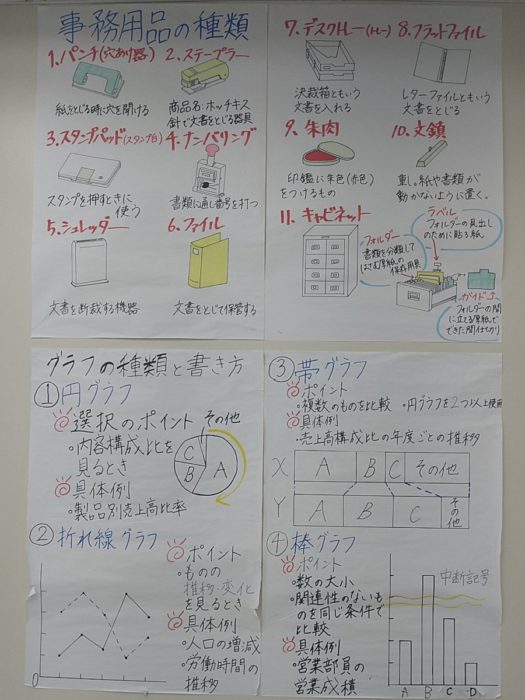 事務用品の種類
1.パンチ(穴あけ器)
紙をとじる時に穴を開ける
2.ステープラー
商品名:ホッチキス
針で文書をとじる器具
3.スタンプパッド(スタンプ台)
スタンプを押すときに
使う
4.ナンバリング
書類に通し番号を打つ
5.シュレッダー
文書を断裁する機器
6.ファイル
文書をとじて保管する
7.デスクトレー(トレー)
決裁箱ともいう
文書を入れる
8.フラットファイル
レターファイルともいう
文書をとじる
9.朱肉
印鑑に朱色(赤色)
をつけるもの
10.文鎮
重し。紙や書類が
動かないように置く。
11.キャビネット
フォルダー
書類を分類して
はさむ厚紙の
保存用具
ラベル
フォルダーの見出し
のために貼る紙
ガイド
フォルダーの間
に立てる厚紙で
できた間仕切り
グラフの種類と書き方
①円グラフ
選択のポイント
・内容構成比を
見るとき
具体例
・製品別売上高比率
その他
C
B
A
②折れ線グラフ
ポイント
・ものの
推移・変化
を見るとき
具体例
・人口の増減
・労働時間の
推移
0
③帯グラフ
ポイント
・複数のものを比較 ・円グラフを2つ以上使用
具体例
・売上高構成比の年度ごとの推移
X A B C その他
Y A B C その他
④棒グラフ
ポイント
・数の大小
・関連性のないも
のを同じ条件で
比較
具体例
・営業部員の
営業成積
中断記号
A B C D